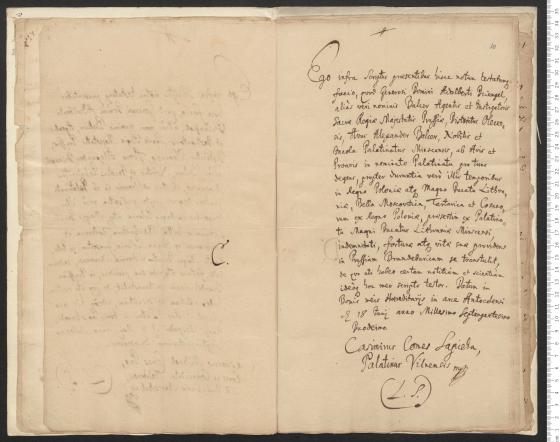 10
Ego infra Scriptus praesentibus hisce notum testatumq
facio, quod Generosi Domini Adalberti
alias veri nominis Bulcov Agentis et Instigatoris
Sacrae Regiae Majestatis Prussiae, Districtus
sis, Avus Alexander Bolcov, Nobilis et
Incola Palatinatus Minscensis, ab Avis et
Proavis in nominato Palatinatu
degens, propter durantia vero illis temporibus
in Regno Poloniae atq Magno Ducatu Lithva,
niae, Bella Moscovitica, Tartarica et Cosaco,
rum ex Regno Poloniae, praesertim ex Palatina,
tu Magni Ducatus Lithvaniae Minscensi,
indemnitati, fortunae atq vitae suae providens
in Prussiam Brandeburicam se transtulit,
de quo uti habeo certam notitiam et scientiam
ideoq hoc meo scripto testor. Datum in
Bonis meis Hereditariis in arce Antocolensi
18 Junij anno Millesimo Septengentesimo
Casimirus Comes Sapieha,
Palatinus Vilnensis mpp
(L. S.)
C.